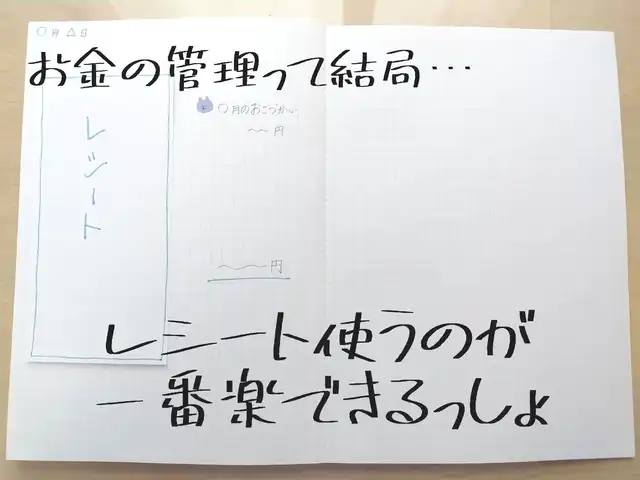 ○月△日
お金の管理って結局…
○月のおこづかい
〜〜円
レジート
〜〜〜円
レシート使うのが
一番楽できるっしょ